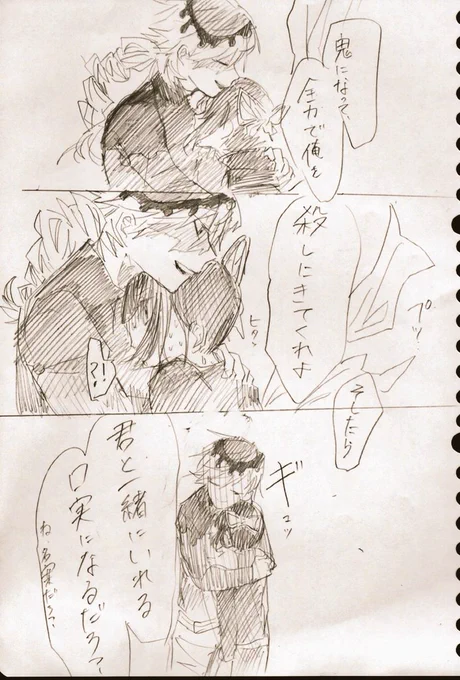 鬼になって、
全力で俺を
殺しにきてくれよ
プッ
ヒタ
?!
そしたら
ギュッ
君と一緒にいれる
口実になるだろ?